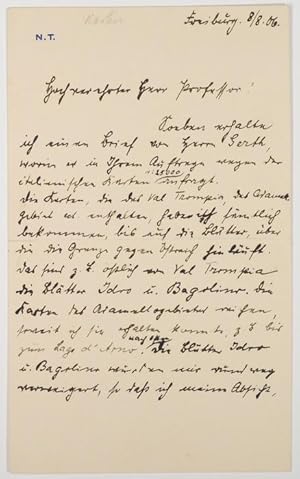 Freiburg. 8/8.06.
N.T.
Hochverehrter Herr Professor!
Soeben erhalte
ich einen Brief von Herrn
worin er in Ihrem Auftrage wegen der
1:25000
italienischen Karten anfragt.
Die Karten, die das Val Trompia, das Adamello
gebiet etc. enthalten, habe ich sämtlich
bekommen, bis auf die Blätter, über
die die Grenze gegen Östreich hinläuft
das sind z.B. östlich von Val Trompia
die Blätter Idro u. Bagolino. Die
Karten des Adamellogebietes reichen,
soweit ich sie erhalten konnte, z.B. bis
zum Lago d'Arno, die Blätter Idro
u. Bagolino wurden mir rundweg
verweigert, so daß ich meine Absicht,